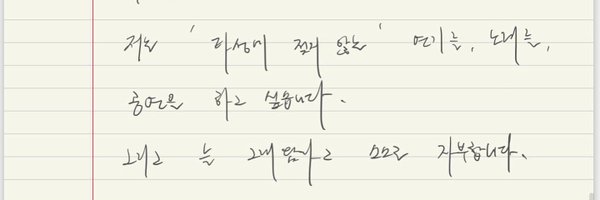 저는 '타성에 젖지 않는' 연기를, 노래를,
공연을 하고 싶습니다.
그리고 늘 그래왔다고 스스로 자부합니다.